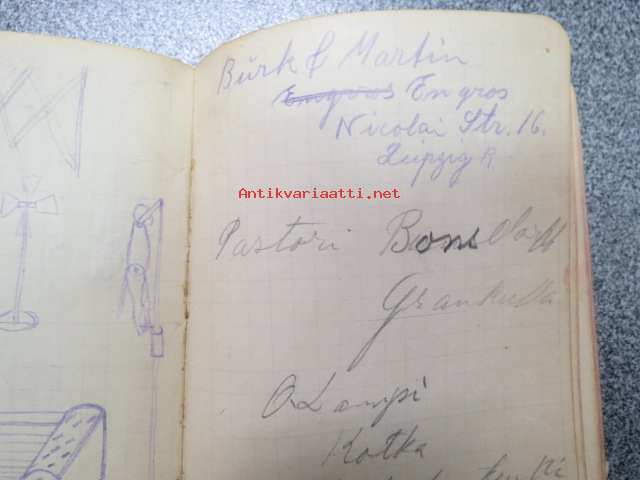 Bürk & Martin
Engros Engros
Nicolai Str. 16.
Leipzig R.
Antikvariaatti.net
Pastori
Grankulla
O Lampi
Kotka